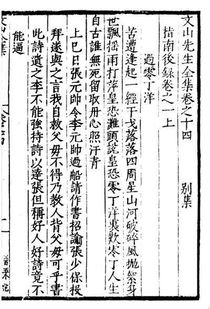 文山先生全集卷之十四 別集
指南後錄卷之一上
過零丁洋
辛苦遭逢起一經干戈落落四周星山河破碎風抛絮身
世飄搖雨打萍皇恐灘頭說皇恐零丁洋裏歎零丁人生
自古誰無死留取丹心照汗青
上巳日張元帥令李元帥過船請作書招諭張少保投
拜遂與之言我自救父母不得乃教人背父母可乎書
此詩遺之李不能強持詩以達張但稱好人好詩竟不
能逼